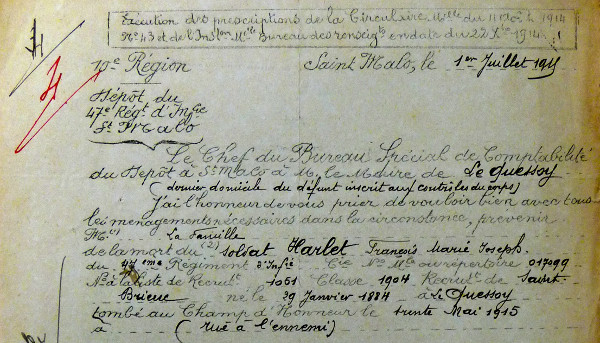 Exécution des prescriptions de la Circulaire Mlle du 11 1914
No 43 et de l'Inston Mlle Bureau des renseigts en date du 22 Xbre 1914
10e Région Saint Malo, le 1er Juillet 1915
Dépôt du
47e Régt d'Infie
St Malo
Le Chef du Bureau Spécial de Comptabilité
du Dépôt à St Malo à M. le Maire de Le Quessoy
(dernier domicile du défunt inscrit aux contrôles du corps)
J'ai l'honneur de vous prier de vouloir bien avec tous
les ménagements nécessaires dans la circonstance, prévenir
M(1) La famille
de la mort du (2) Soldat Harlet François Marie Joseph
du 47eme Régiment d'Infie Cie No Mle ou répertoire 017099
No à la liste de Recrutt 1051 Classe 1904 Recrutt de Saint
Brieuc né le 29 Janvier 1884 à Le Quessoy
tombé au Champ d'Honneur le trente Mai 1915
à (rue à l'ennemi)